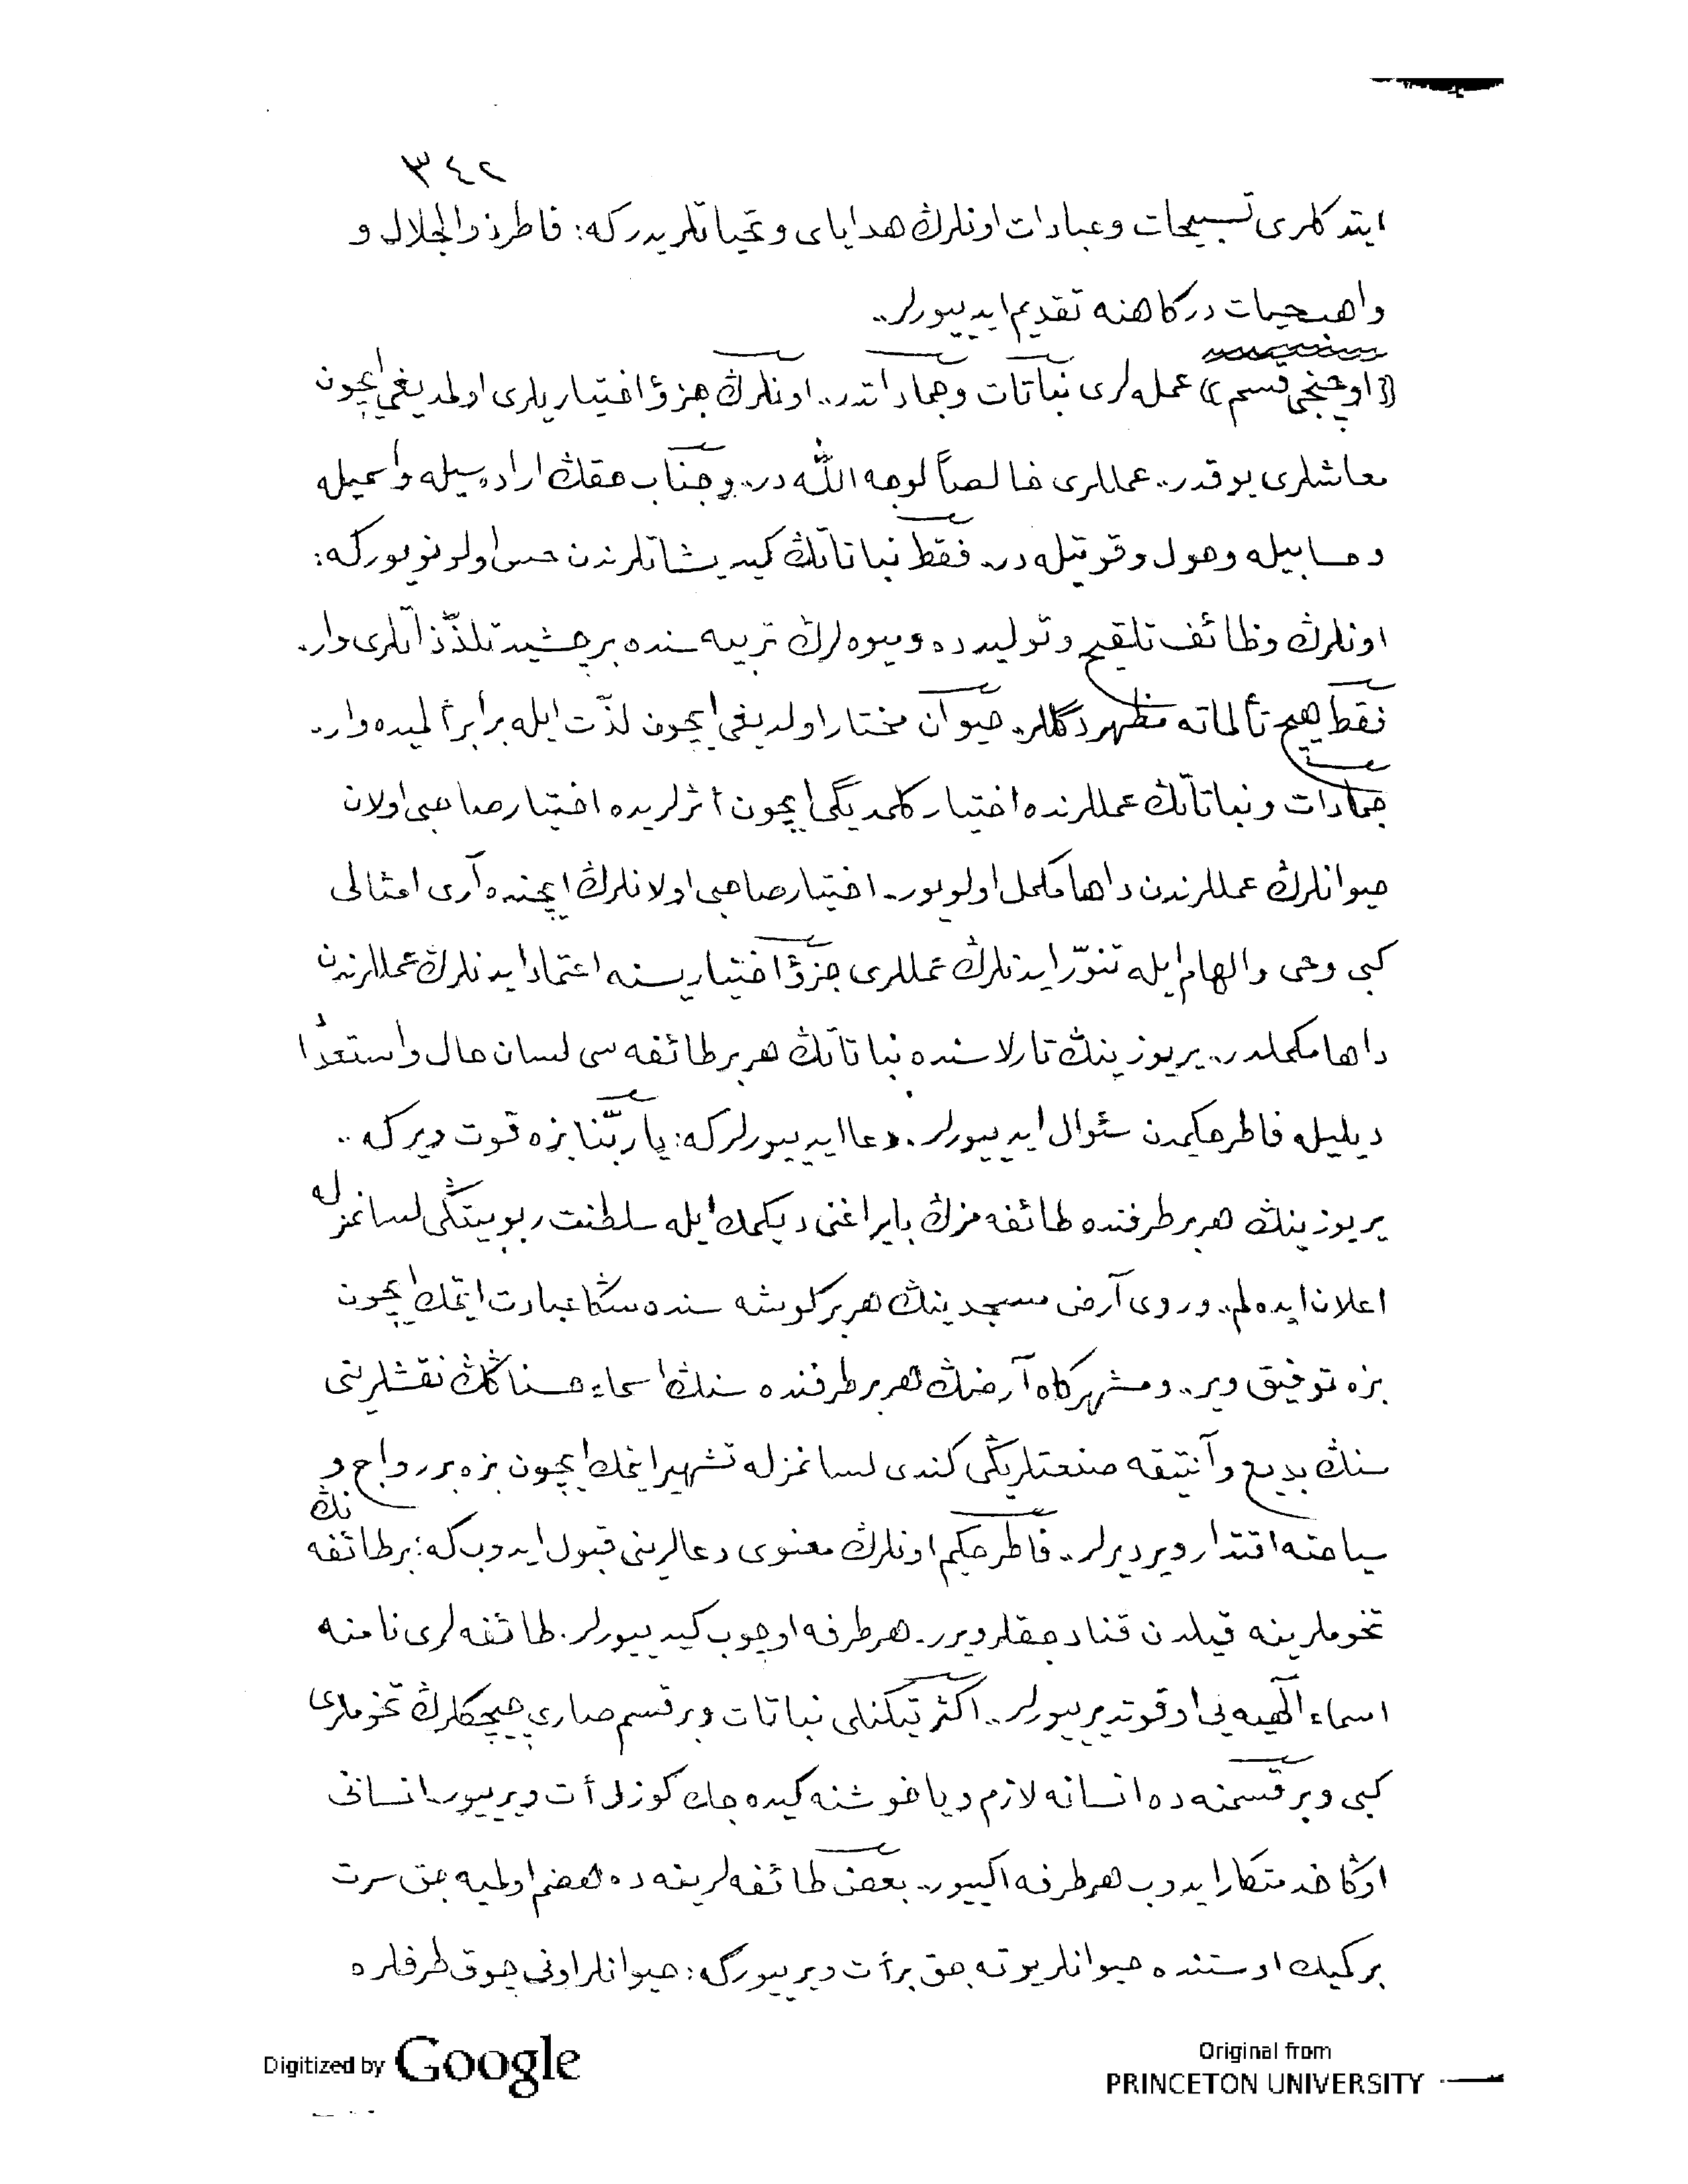 ٣٤٢
ايتدكلرى تسبيحات و عبادات اونلرڭ هداياى و تحياتلريدركه: فاطر ذوالجلال و
واهب حيات دركاهنه تقديم ايدييورلر..
((اوچنجى قسم)) عمله‌لرى نباتات و جماداتدر.. اونلرڭ جزؤ اختياريلرى اولمديغى ايچون
معاشلرى يوقدر.. عمللرى خالصاً لوجه الله در.. و جناب حقڭ اراده‌سيله و اسميله
و حسابيله و حول و قوتيله در.. فقط نباتاتڭ كيديشاتلرندن حس اولونويوركه:
اونلرڭ وظائف تلقيح و توليدده و ميوه‌لرڭ تربيه‌سنده برچشيد تلذّذاتلرى وار.
فقط هيچ تألماته مظهر دگللر. حيوان مختار اولديغى ايچون لذّت ايله برابر ألميده وار.
جمادات و نباتاتڭ عمللرنده اختيار كلمديگى ايچون أثرلريده اختيار صاحبى اولان
حيوانلرڭ عمللرندن داها مكمل اولويور. اختيار صاحبى اولانلرڭ ايچنده آرى امثالى
كبى وحى و الهام ايله تنوّر ايدنلرڭ عمللرى جزؤ اختياريسنه اعتماد ايدنلرڭ عمللرندن
داها مكملدر.. يريوزينڭ تارلاسنده نباتاتڭ هربر طائفه‌سى لسان حال و استعداد
ديليله فاطر حكيمدن سئوال ايدييورلر. دعا ايدييورلركه: يا ربّنا بزه قوت ويركه..
يريوزينڭ هربر طرفنده طائفه‌مزڭ بايراغنى ديكمك ايله سلطنت ربوبيتڭى لسانمزله
اعلان ايده‌لم.. و روى أرض مسجدينڭ هربر كوشه‌سنده سڭا عبادت ايتمك ايچون
بزه توفيق وير.. و مشهركاه أرضڭ هربر طرفنده سنڭ اسماء حسناڭڭ نقشلرينى
سنڭ بديع و أنتيقه صنعتلريڭى كندى لسانمزله تشهير ايتمك ايچون بزه بر رواج و
سياحته اقتدار وير ديرلر.. فاطر حكيم اونلرڭ معنوى دعالرينى قبول ايدوب كه: بر طائفه‌نڭ
تخوملرينه قيلدن قنادجقلر ويرر. هر طرفه اوچوب كيدييورلر. طائفه‌لرى نامنه
اسماء الٓهيه‌يى اوقوتديرييورلر.. اكثر تيكنلى نباتات و بر قسم صارى چيچكلرڭ تخوملرى
كبى و بر قسمنه ده انسانه لازم و يا خوشنه كيده‌جك كوزل أت ويرييور. انسانى
اوڭا خدمتكار ايدوب هر طرفه اكييور.. بعض طائفه‌لرينه ده هضم اولميه‌جق سرت
بر كميك اوستنده حيوانلر يوته‌جق بر أت ويرييوركه: حيوانلر اونى چوق طرفلره
Digitized by Google
Original from
PRINCETON UNIVERSITY